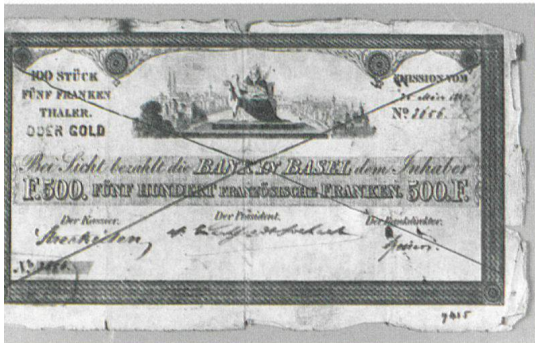 100 STÜCK
FÜNF FRANKEN
THALER.
ODER GOLD
EMISSION VOM
No 2656.
Bei Sicht bezahlt die BANK IN BASEL dem Inhaber
F.500. FÜNF HUNDERT FRANZÖSISCHE FRANKEN. 500.F.
Der Kassier. Der Präsident. Der Bankdirektor.
No 2656.
9415